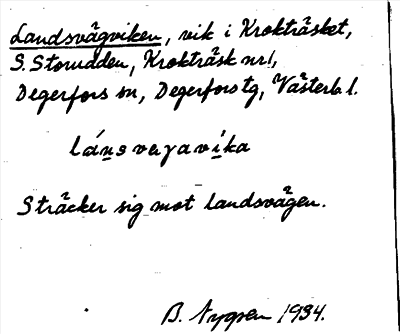 Landsvägviken, vik i Krokträsket,
S. Storudden, Krokträsk nr 1,
Degerfors sn, Degerfors tg, Västerb. l.
lánsvegavíka
Sträcker sig mot landsvägen.
B. Nygren 1934.